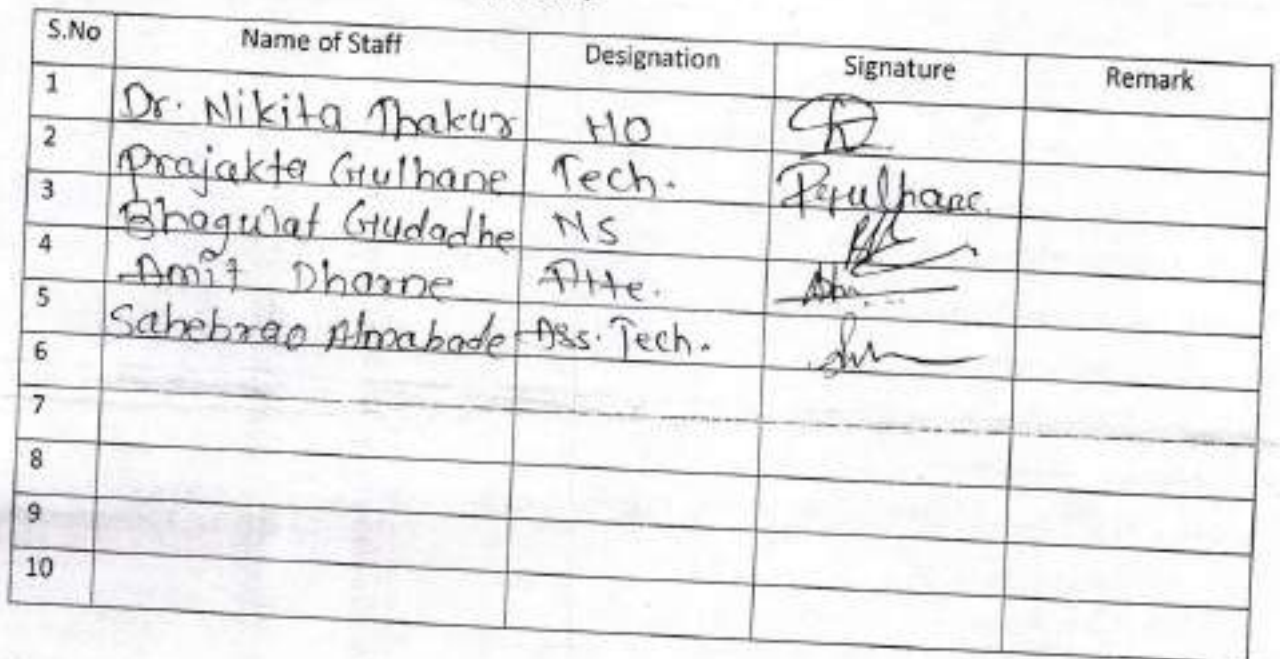 S.No Name of Staff Designation Signature Remark
1 Dr. Nikita Thakur HO
2 Prajakta Gulhane Tech. P.Gulhane.
3 Bhagwat Gudadhe NS
4 Amit Dharne Atte.
5 Sahebrao Almabade Ass. Tech.
6
7
8
9
10